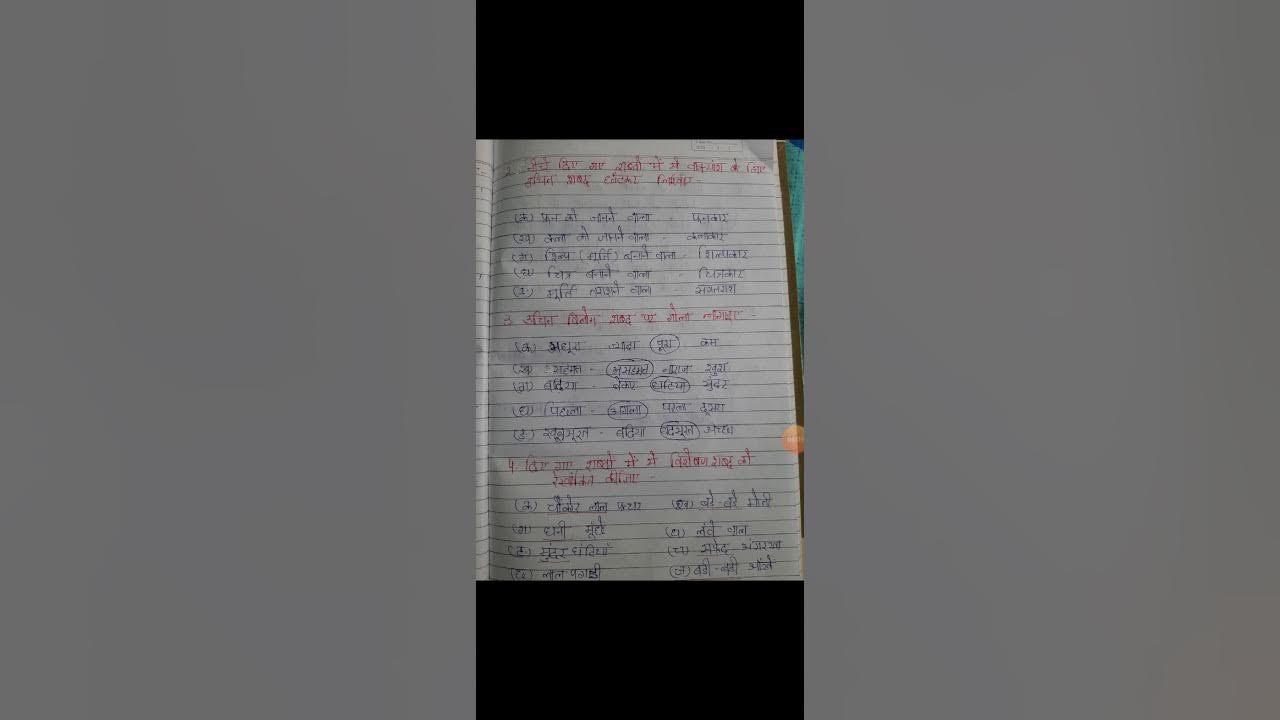 2. नीचे दिए गए शब्दों में से वाक्यांश के लिए
उचित शब्द छाँटकर लिखिए -
(क) फन को जानने वाला - फनकार
(ख) कला को जानने वाला - कलाकार
(ग) शिल्प (मूर्ति) बनाने वाला - शिल्पकार
(घ) चित्र बनाने वाला - चित्रकार
(ङ) मूर्ति तराशने वाला - संगतराश
3. उचित विलोम शब्द पर गोला लगाइए -
(क) अधूरा ज्यादा पूरा कम
(ख) सहमत - असहमत नाराज खुश
(ग) बढ़िया - बेकार घटिया सुंदर
(घ) पिछला - अगला पहला दूसरा
(ङ) खूबसूरत - बढ़िया बदसूरत अच्छा
4. दिए गए शब्दों में से विशेषण शब्द को
रेखांकित कीजिए -
(क) चौकोर लाल पत्थर (ख) बड़े-बड़े मोती
(ग) घनी मूंछे (घ) लंबे बाल
(ङ) सुंदर घंटियाँ (च) सफेद अंगरखा
(छ) लाल पगड़ी (ज) बड़ी-बड़ी आँखें